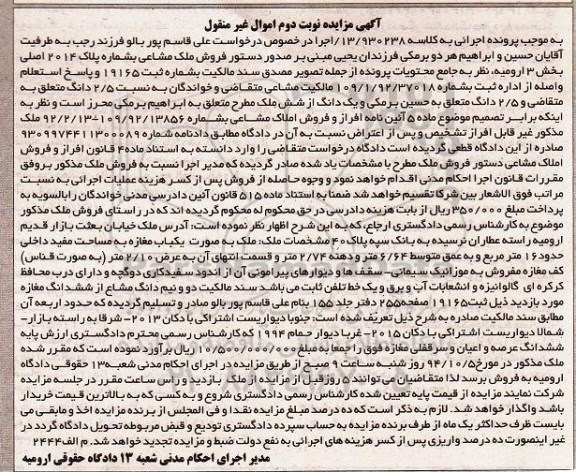 آگهی مزایده نوبت دوم اموال غیر منقول
به موجب پرونده اجرائی به کلاسه ۱۳/۹۳۰۲۳۸/اجرا در خصوص درخواست علی قاسم پور بالو فرزند رجب به طرفیت
آقایان حسین و ابراهیم هر دو برمکی فرزندان یحیی مبنی بر صدور دستور فروش ملک مشاعی بشماره پلاک ۲۰۱۴ اصلی
بخش ۳ ارومیه، نظر به جامع محتویات پرونده از جمله تصویر مصدق سند مالکیت بشماره ثبت ۱۹۱۶۵ و پاسخ استعلام
واصله از اداره ثبت بشماره ۱۰۹/۱/۹۲/۳۷۰۱۸ مالکیت مشاعی متقاضی و خواندگان به نسبت ۲/۵ دانگ متعلق به
متقاضی و ۲/۵ دانگ متعلق به حسین برمکی و یک دانگ از شش ملک مطرح متعلق به ابراهیم برمکی محرز است و نظر به
اینکه برابر تصمیم موضوع ماده ۵ آئین نامه افراز و فروش املاک مشاعی بشماره ۱۰۹/۹۲/۱۳۸۵۶-۹۲/۲/۱۳ ملک
مذکور غیر قابل افراز تشخیص و پس از اعتراض نسبت به آن در دادگاه مطابق دادنامه شماره ۹۳۰۹۹۷۴۴۱۱۳۰۰۰۸۹
صادره از این دادگاه قطعی گردیده است دادگاه درخواست متقاضی را وارد دانسته به استناد ماده۴ قانون افراز و فروش
املاک مشاعی دستور فروش ملک مطرح با مشخصات یاد شده صادر گردیده که مدیر اجرا نسبت به فروش ملک مذکور بر وفق
مقررات قانون اجرا احکام مدنی اقدام خواهد نمود و وجوه حاصله از فروش پس از کسر هزینه عملیات اجرائی به نسبت
مراتب فوق الاشعار بین شرکا تقسیم خواهد شد ضمنا به استناد ماده ۵۱۵ قانون آئین دادرسی مدنی خواندگان را بالسویه به
پرداخت مبلغ ۳۵۰/۰۰۰ ریال از بابت هزینه دادرسی در حق محکوم له محکوم گردیده اند که در راستای فروش ملک مذکور
موضوع به کارشناس رسمی دادگستری ارجاع، که به این شرح اظهار نظر نموده است: آدرس ملک خیابان بعثت بازار قدیم
ارومیه راسته عطاران نرسیده به بانک سپه پلاک ۴۰ مشخصات ملک: ملک به صورت یکباب مغازه به مساحت مفید داخلی
حدود ۱۶ متر مربع و به عمق متوسط ۶/۶۴ متر و دهنه ۲/۷۴ متر و قسمت انتهای آن به عرض ۲/۱۰ متر (به صورت قناس)
کف مغازه مفروش به موزائیک سیمانی- سقف ها و دیوارهای پیرامونی آن از اندود سفیدکاری دوگچه و دارای درب محافظ
کرکره ای گالوانیزه و انشعابات آب و برق و یک خط تلفن ثابت می باشد سند مالکیت دو و نیم دانگ مشاع از ششدانگ مغازه
مورد بازدید ذیل ثبت۱۹۱۶۵ صفحه۲۵۵ دفتر جلد ۱۵۵ بنام علی قاسم پور بالو صادر و تسلیم گردیده که حدود اربعه آن
مطابق سند مالکیت صادره به شرح ذیل تعریف شده است: جنوبا دیواریست اشتراکی با دکان ۲۰۱۳- شرقا به راسته بازار-
شمالا دیواریست اشتراکی با دکان ۲۰۱۵- غربا دیوار حمام ۱۹۹۴ که کارشناس رسمی محترم دادگستری ارزش پایه
ششدانگ عرصه و اعیان و سرقفلی مغازه فوق را جمعا به مبلغ ۱۰/۵۰۰/۰۰۰/۰۰۰ ریال برآورد نموده است که مقرر شده
ملک مذکور در مورخ ۹۴/۱۰/۵ روز شنبه ساعت ۹ صبح از طریق مزایده در اجرای احکام مدنی شعبه ۱۳ حقوقی دادگاه
ارومیه به فروش برسد لذا متقاضیان می توانند ۵ روز قبل از مزایده به بازدید و راس ساعت مقرر در جلسه مزایده
شرکت نمایند مزایده از قیمت پایه تعیین شده کارشناس رسمی دادگستری شروع و به کسی که به بالاترین قیمت خریدار
باشد واگذار خواهد شد. لازم به ذکر است که ده درصد مبلغ مزایده نقدا و فی المجلس از برنده مزایده اخذ و مابقی می
بایست ظرف حداکثر یک ماه از طرف برنده مزایده به حساب سپرده دادگستری تودیع و قبض مربوطه تحویل دادگاه گردد در
غیر اینصورت ده درصد واریزی پس از کسر هزینه های اجرائی به نفع دولت ضبط و مزایده تجدید خواهد شد. م الف ۲۴۴۴
مدیر اجرای احکام مدنی شعبه ۱۳ دادگاه حقوقی ارومیه